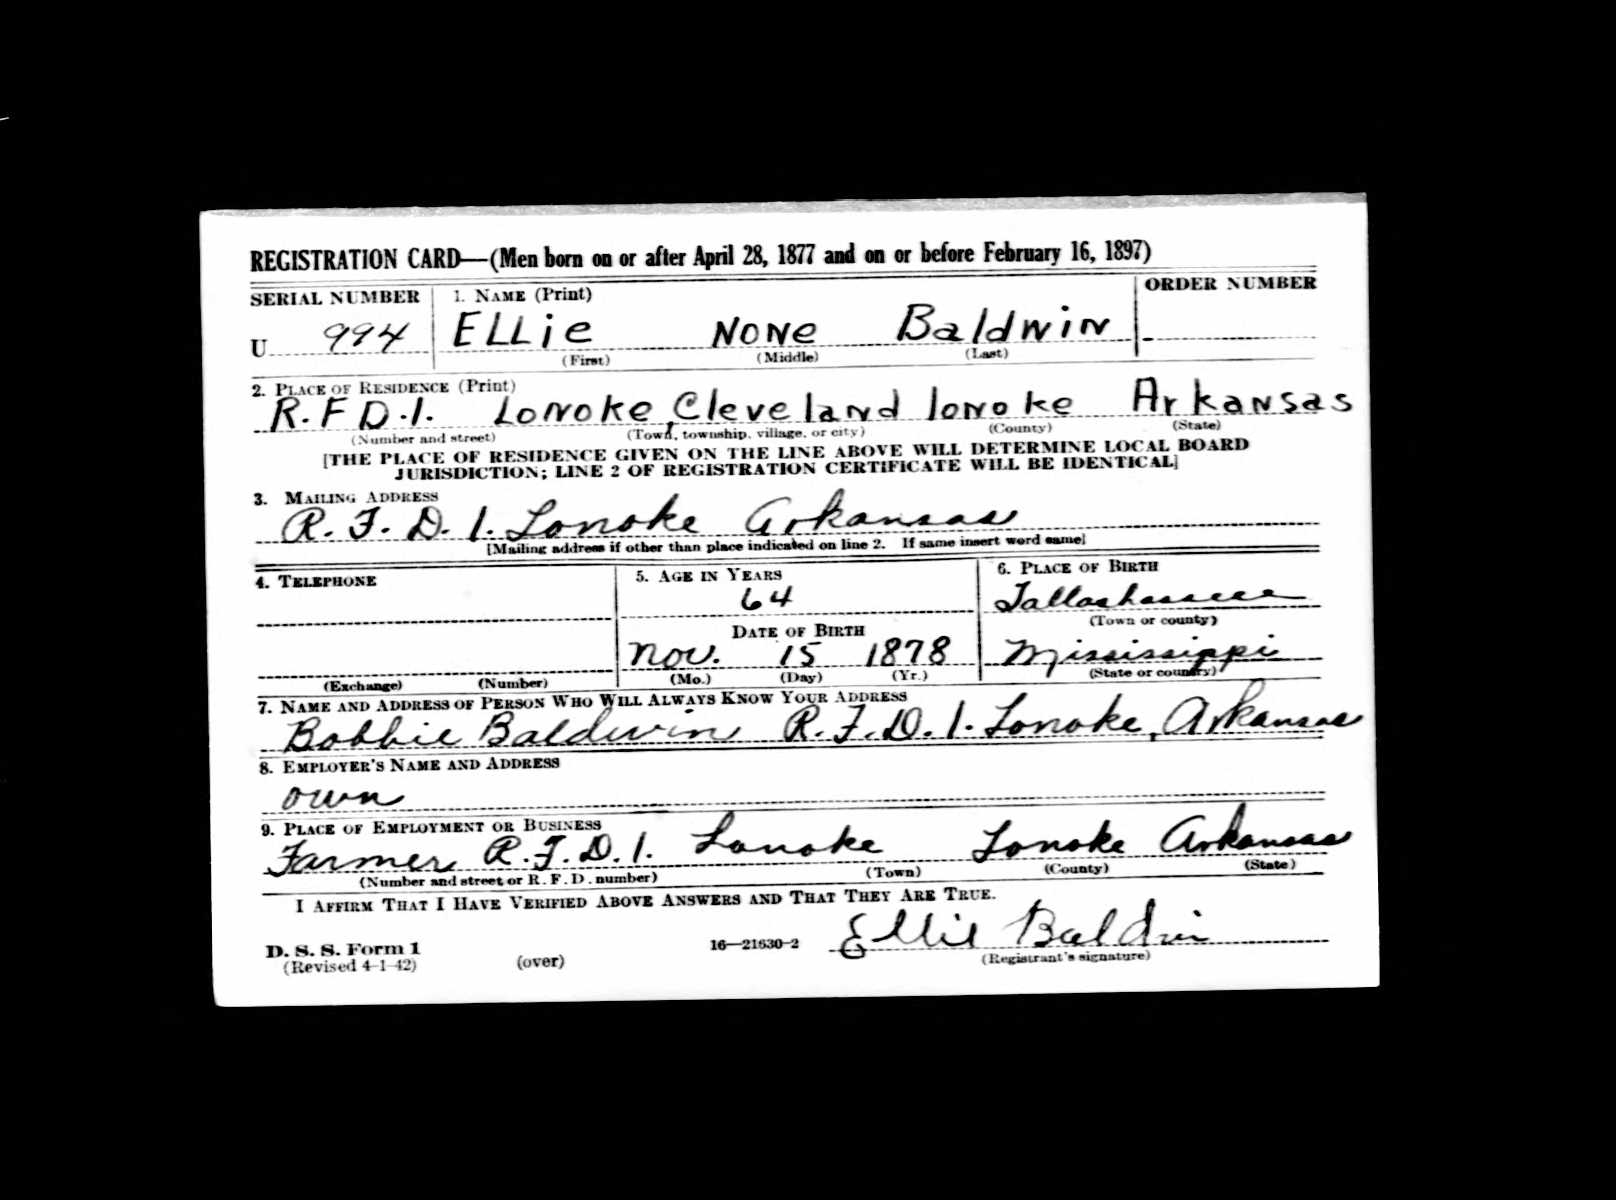 REGISTRATION CARD—(Men born on or after April 28, 1877 and on or before February 16, 1897)
SERIAL NUMBER 1. NAME (Print) ORDER NUMBER
U 994 ELLie NONe BaldwiN
(First) (Middle) (Last)
2. PLACE OF RESIDENCE (Print)
R.F.D.1. LoNoke, Cleveland loNoke ArkaNsas
(Number and street) (Town, township, village, or city) (County) (State)
[THE PLACE OF RESIDENCE GIVEN ON THE LINE ABOVE WILL DETERMINE LOCAL BOARD
JURISDICTION; LINE 2 OF REGISTRATION CERTIFICATE WILL BE IDENTICAL]
3. MAILING ADDRESS
R. F. D. 1. Lonoke Arkansas
[Mailing address if other than place indicated on line 2. If same insert word same]
4. TELEPHONE 5. AGE IN YEARS 6. PLACE OF BIRTH
64 Tallashassee
DATE OF BIRTH (Town or county)
Nov. 15 1878 Mississippi
(Exchange) (Number) (Mo.) (Day) (Yr.) (State or country)
7. NAME AND ADDRESS OF PERSON WHO WILL ALWAYS KNOW YOUR ADDRESS
Bobbie Baldwin R.F.D.1. Lonoke, Arkansas
8. EMPLOYER'S NAME AND ADDRESS
own
9. PLACE OF EMPLOYMENT OR BUSINESS
Farmer R.F.D.1. Lonoke Lonoke Arkansas
(Number and street or R. F. D. number) (Town) (County) (State)
I AFFIRM THAT I HAVE VERIFIED ABOVE ANSWERS AND THAT THEY ARE TRUE.
D. S. S. Form 1 16—21630-2 Ellie Baldwin
(Revised 4-1-42) (over) (Registrant's signature)